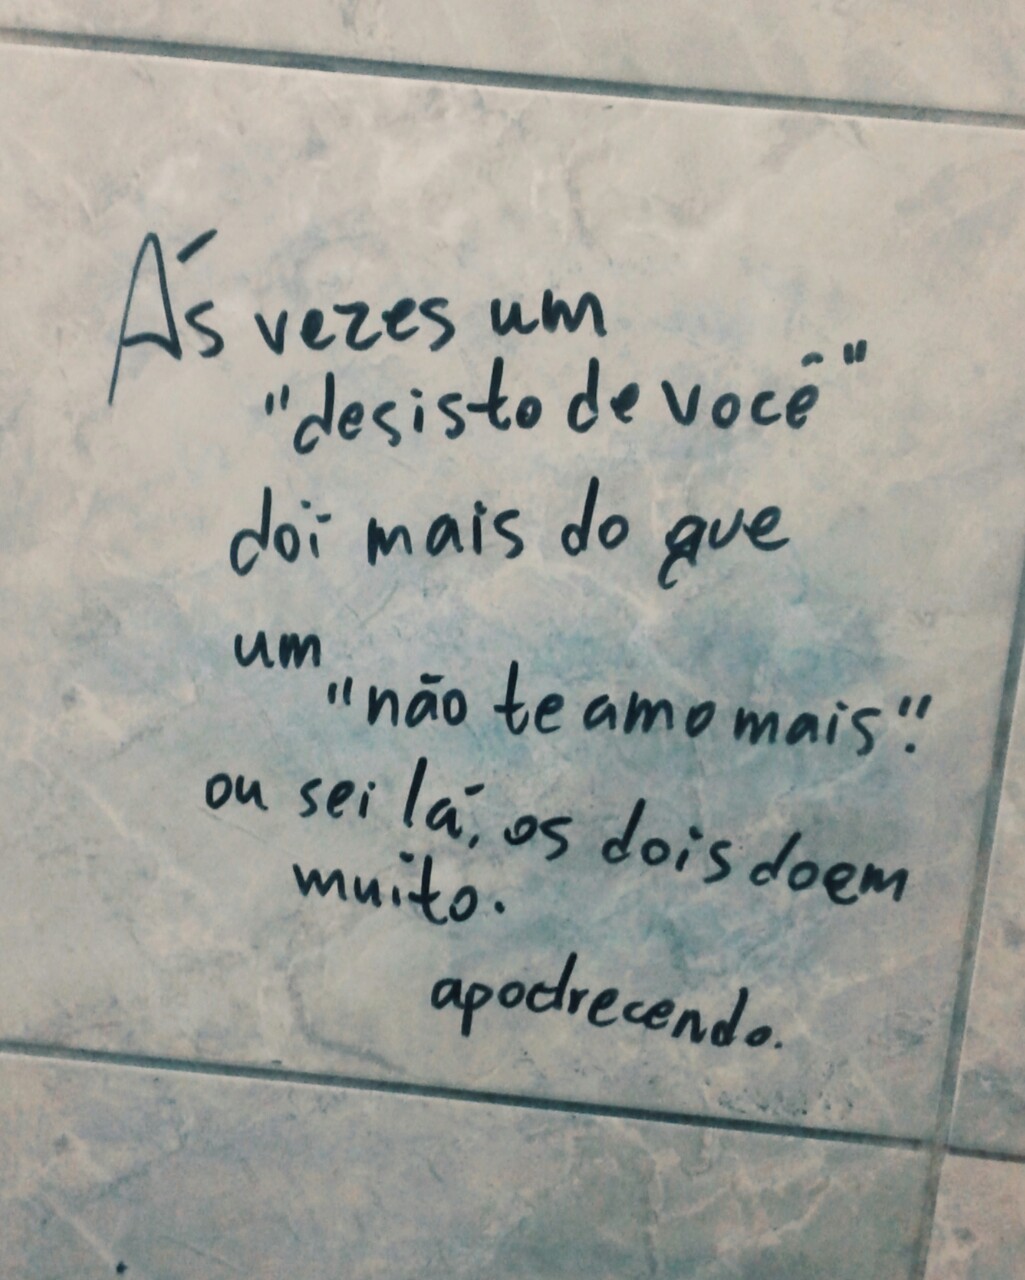 Ás vezes um
"desisto de você"
doi mais do que
um
"não te amo mais".
ou sei lá, os dois doem
muito.
apodrecendo.